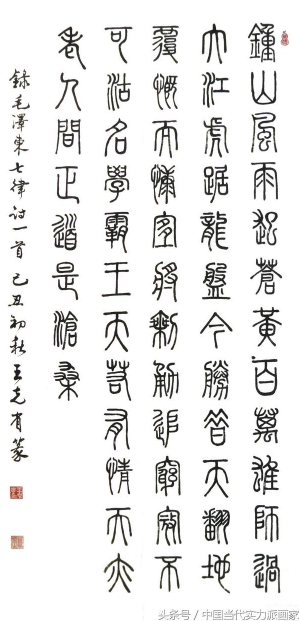 鍾山風雨起蒼黃百萬雄師過
大江虎踞龍盤今勝昔天翻地
覆慨而慷宜將剩勇追窮寇不
可沽名學霸王天若有情天亦
老人間正道是滄桑
錄毛澤東七律詩一首 己丑初秋 王克有篆
头条号 / 中国当代实力派画家